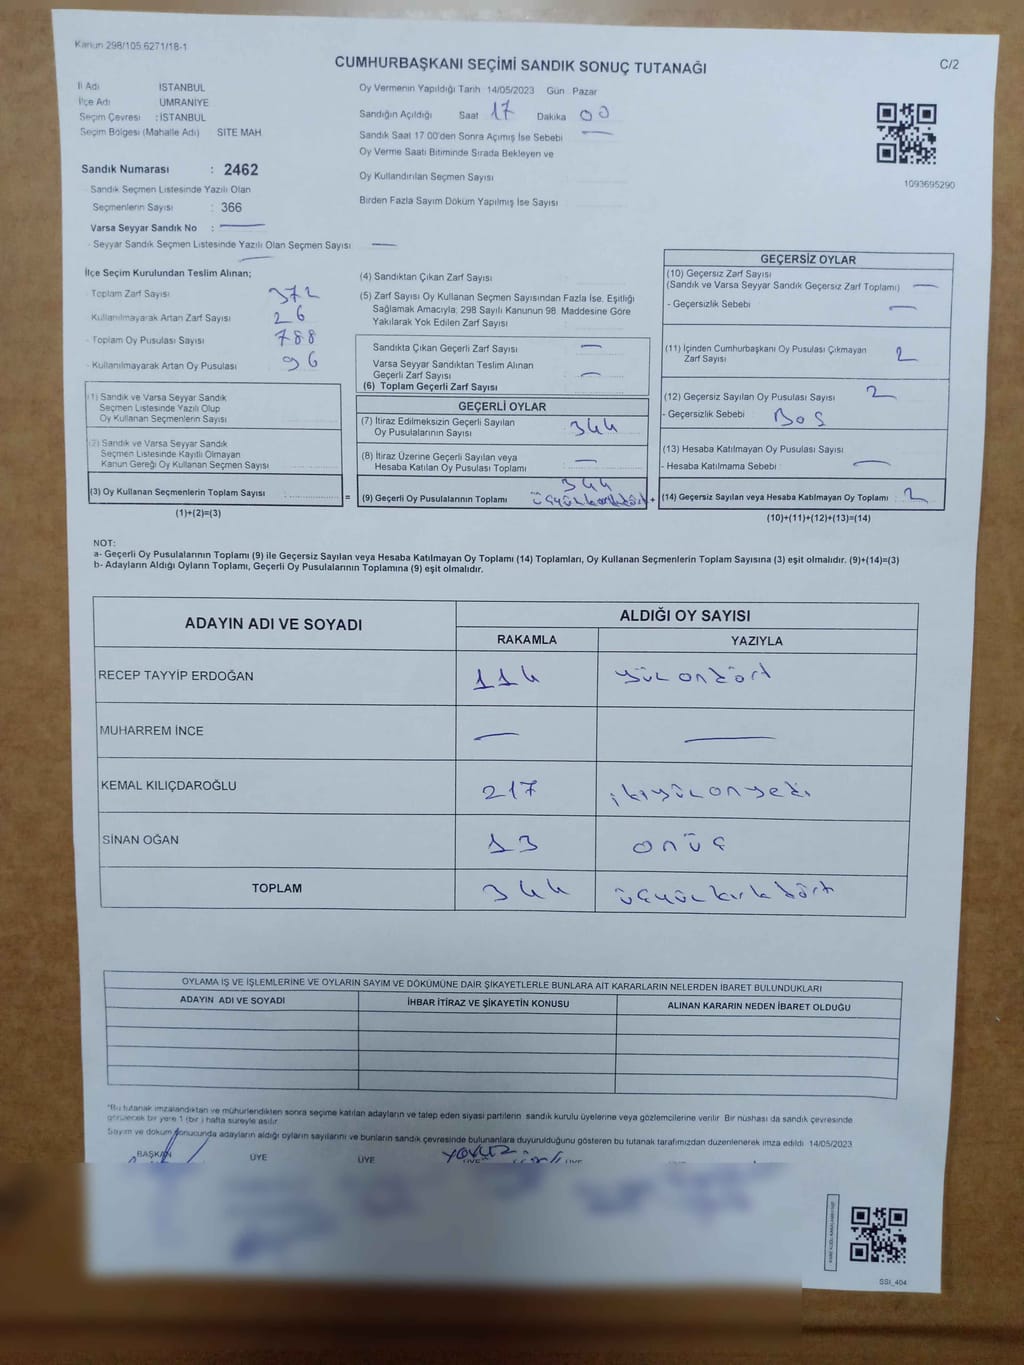 Kanun 298/105.6271/18-1
CUMHURBAŞKANI SEÇİMİ SANDIK SONUÇ TUTANAĞI
C/2
İl Adı İSTANBUL
İlçe Adı ÜMRANİYE
Seçim Çevresi : İSTANBUL
Seçim Bölgesi (Mahalle Adı) SİTE MAH.
Sandık Numarası : 2462
- Sandık Seçmen Listesinde Yazılı Olan
Seçmenlerin Sayısı : 366
Varsa Seyyar Sandık No :
- Seyyar Sandık Seçmen Listesinde Yazılı Olan Seçmen Sayısı
Oy Vermenin Yapıldığı Tarih 14/05/2023 Gün : Pazar
Sandığın Açıldığı Saat 17 Dakika 00
Sandık Saat 17.00'den Sonra Açımış İse Sebebi
Oy Verme Saati Bitiminde Sırada Bekleyen ve
Oy Kullandırılan Seçmen Sayısı
Birden Fazla Sayım Döküm Yapılmış İse Sayısı
1093695290
İlçe Seçim Kurulundan Teslim Alınan;
- Toplam Zarf Sayısı 372
- Kullanılmayarak Artan Zarf Sayısı 26
- Toplam Oy Pusulası Sayısı 788
- Kullanılmayarak Artan Oy Pusulası 96
(1) Sandık ve Varsa Seyyar Sandık
Seçmen Listesinde Yazılı Olup
Oy Kullanan Seçmenlerin Sayısı
(2) Sandık ve Varsa Seyyar Sandık
Seçmen Listesinde Kayıtlı Olmayan
Kanun Gereği Oy Kullanan Seçmen Sayısı
(3) Oy Kullanan Seçmenlerin Toplam Sayısı : =
(1)+(2)=(3)
(4) Sandıktan Çıkan Zarf Sayısı
(5) Zarf Sayısı Oy Kullanan Seçmen Sayısından Fazla İse, Eşitliği
Sağlamak Amacıyla; 298 Sayılı Kanunun 98. Maddesine Göre
Yakılarak Yok Edilen Zarf Sayısı
Sandıkta Çıkan Geçerli Zarf Sayısı
Varsa Seyyar Sandıktan Teslim Alınan
Geçerli Zarf Sayısı
(6) Toplam Geçerli Zarf Sayısı
GEÇERLİ OYLAR
(7) İtiraz Edilmeksizin Geçerli Sayılan
Oy Pusulalarının Sayısı 344
(8) İtiraz Üzerine Geçerli Sayılan veya
Hesaba Katılan Oy Pusulası Toplamı
344
(9) Geçerli Oy Pusulalarının Toplamı üçyüzkırkdört +
GEÇERSİZ OYLAR
(10) Geçersiz Zarf Sayısı
(Sandık ve Varsa Seyyar Sandık Geçersiz Zarf Toplamı)
- Geçersizlik Sebebi
(11) İçinden Cumhurbaşkanı Oy Pusulası Çıkmayan
Zarf Sayısı 2
(12) Geçersiz Sayılan Oy Pusulası Sayısı 2
- Geçersizlik Sebebi BOŞ
(13) Hesaba Katılmayan Oy Pusulası Sayısı
- Hesaba Katılmama Sebebi
(14) Geçersiz Sayılan veya Hesaba Katılmayan Oy Toplamı : 2
(10)+(11)+(12)+(13)=(14)
NOT:
a- Geçerli Oy Pusulalarının Toplamı (9) ile Geçersiz Sayılan veya Hesaba Katılmayan Oy Toplamı (14) Toplamları, Oy Kullanan Seçmenlerin Toplam Sayısına (3) eşit olmalıdır. (9)+(14)=(3)
b- Adayların Aldığı Oyların Toplamı, Geçerli Oy Pusulalarının Toplamına (9) eşit olmalıdır.
ADAYIN ADI VE SOYADI ALDIĞI OY SAYISI
RAKAMLA YAZIYLA
RECEP TAYYİP ERDOĞAN 114 yüzondört
MUHARREM İNCE
KEMAL KILIÇDAROĞLU 217 ikiyüzonyedi
SİNAN OĞAN 13 onüç
TOPLAM 344 üçyüzkırkdört
OYLAMA İŞ VE İŞLEMLERİNE VE OYLARIN SAYIM VE DÖKÜMÜNE DAİR ŞİKAYETLERLE BUNLARA AİT KARARLARIN NELERDEN İBARET BULUNDUKLARI
ADAYIN ADI VE SOYADI İHBAR İTİRAZ VE ŞİKAYETİN KONUSU ALINAN KARARIN NEDEN İBARET OLDUĞU
*Bu tutanak imzalandıktan ve mühürlendikten sonra seçime katılan adayların ve talep eden siyasi partilerin sandık kurulu üyelerine veya gözlemcilerine verilir. Bir nüshası da sandık çevresinde
görülecek bir yere 1 (bir) hafta süreyle asılır.
Sayım ve döküm sonucunda adayların aldığı oyların sayılarını ve bunların sandık çevresinde bulunanlara duyurulduğunu gösteren bu tutanak tarafımızdan düzenlenerek imza edildi. 14/05/2023
BAŞKAN ÜYE ÜYE
SSI_404